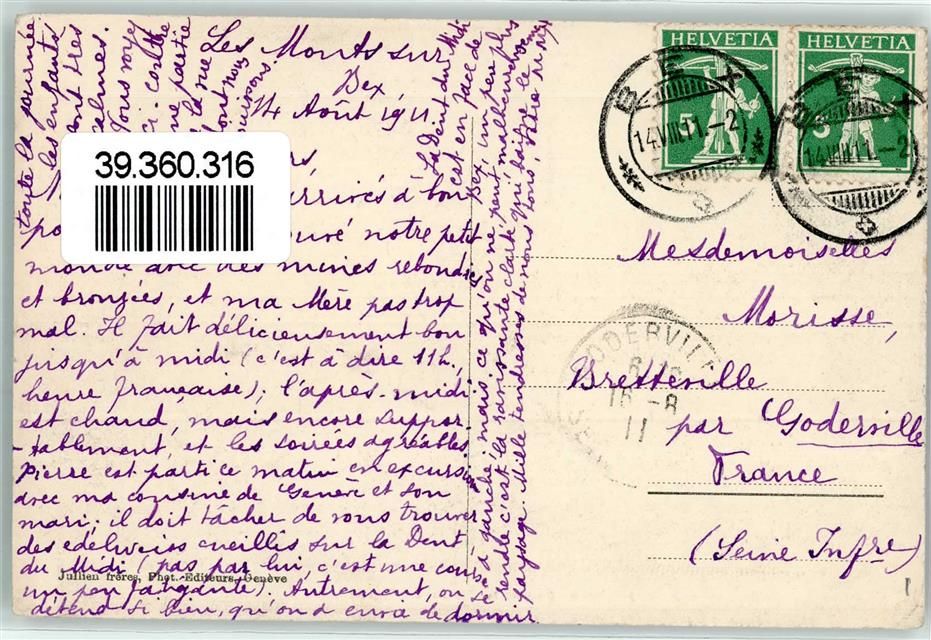 Les Monts sur
Bex
14 Août 1911
39.360.316
arrivés à bon
notre petit
monde avec des mines rebondies
et bronzées, et ma Mère pas trop
mal. Il fait délicieusement bon
jusqu'à midi (c'est à dire 11h,
heure française); l'après-midi
est chaud, mais encore suppor-
-tablement, et les soirées agréables.
Pierre est parti ce matin en excursion
avec ma cousine de Genève et son
mari; il doit tâcher de vous trouver
des edelweiss cueillis sur la Dent
du Midi (pas par lui, c'est une course
un peu fatigante). Autrement, on se
détend si bien, qu'on a envie de dormir
toute la journée
les enfants
sont très
calmes.
Vous voyez
une partie
la vue
dont nous
jouissons.
La Dent du Midi
est en face de
Bex, un peu plus
à gauche; mais ce qu'on ne peut malheureusement
rendre c'est la ravissante clarté qui baigne le
paysage. Mille tendresses de nous tous, votre
Jullien frères, Phot.-Editeurs, Genève
HELVETIA
5
HELVETIA
5
BEX
14.VIII.11.-2
9
BEX
14.VIII.11.-2
GODERVILLE
16-8
11
Mesdemoiselles
Morisse,
Bretteville
par Goderville
France
(Seine Infre)